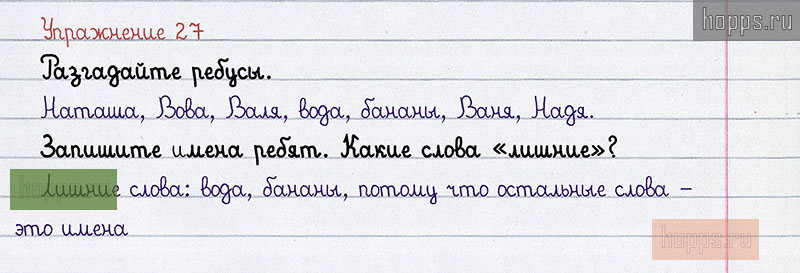 hopps.ru
Упражнение 27
Разгадайте ребусы.
Наташа, Вова, Валя, вода, бананы, Ваня, Надя.
Запишите имена ребят. Какие слова «лишние»?
Лишние слова: вода, бананы, потому что остальные слова –
это имена
hopps.ru